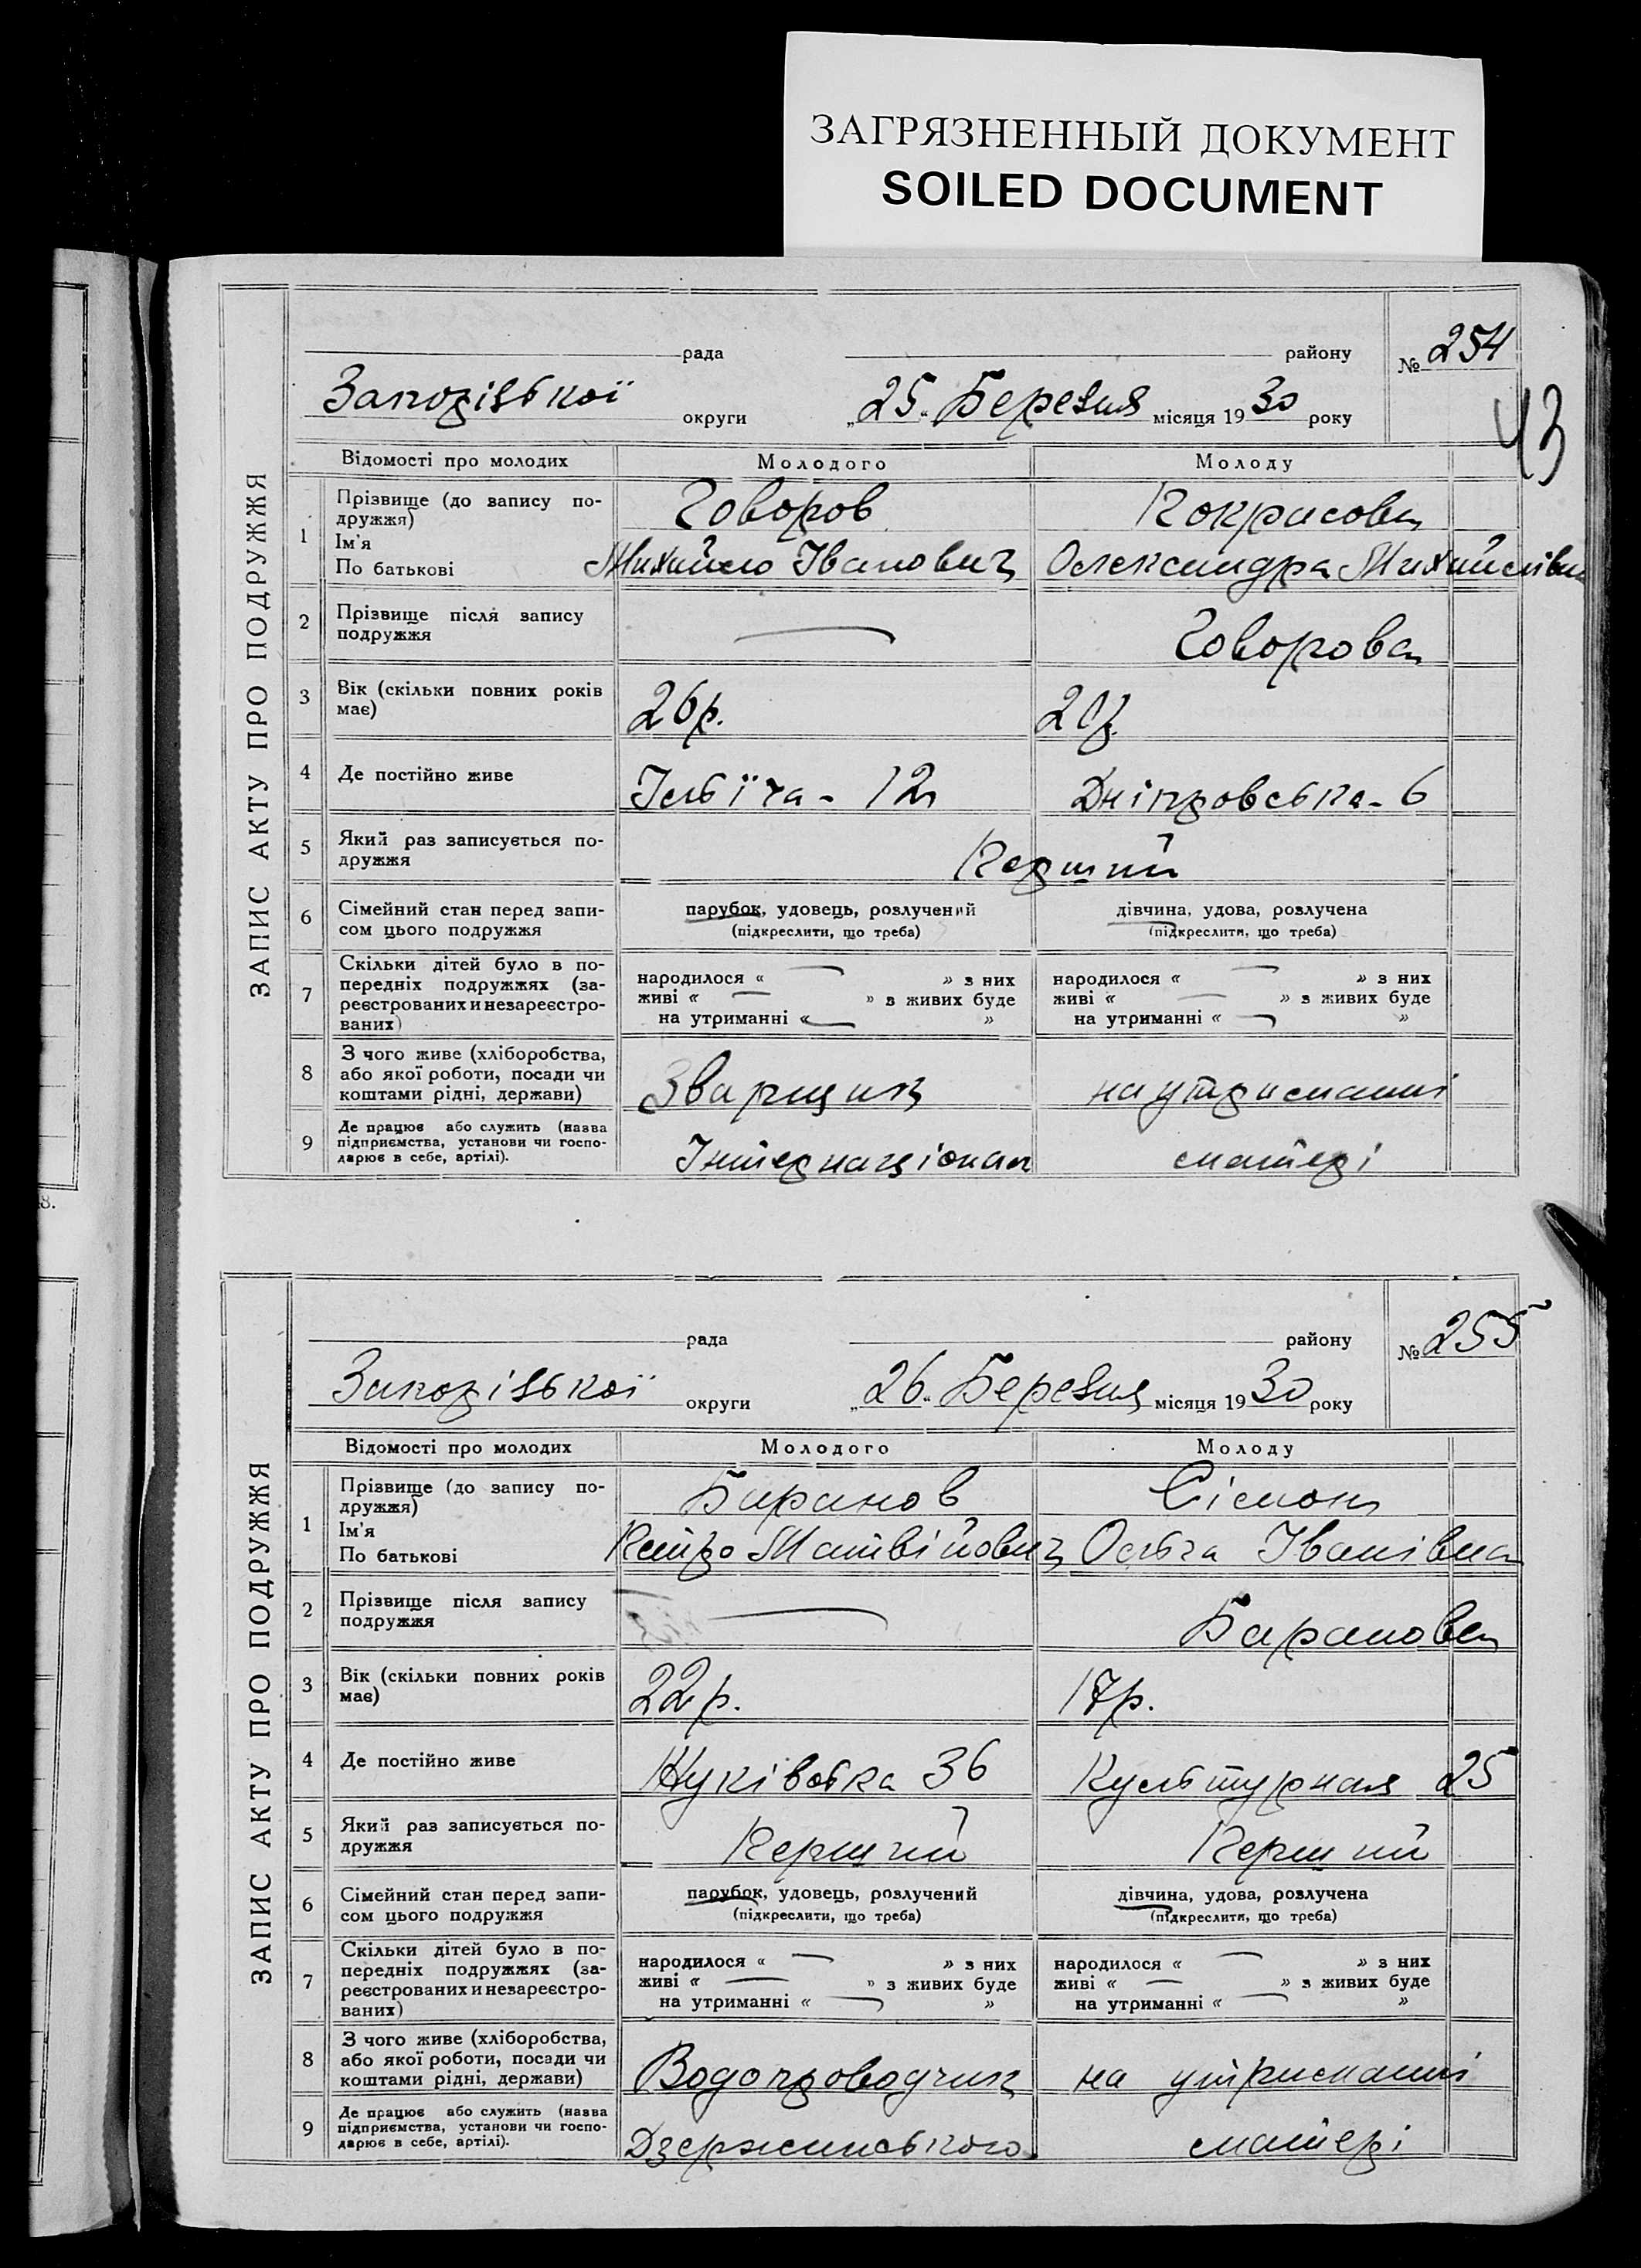 ЗАГРЯЗНЕННЫЙ ДОКУМЕНТ
SOILED DOCUMENT
43
ЗАПИС АКТУ ПРО ПОДРУЖЖЯ
рада району № 254
Запорізької округи „25“ Березня місяця 1930 року
Відомості про молодих Молодого Молоду
1 Прізвище (до запису по-
дружжя) Говоров Покрасова
Ім'я
По батькові Михайло Іванович Олександра Михайлівна
2 Прізвище після запису
подружжя — Говорова
3 Вік (скільки повних років
має) 26 р. 20 р.
4 Де постійно живе Ілліча - 12 Дніпровська - 6
5 Який раз записується по-
дружжя Перший
6 Сімейний стан перед запи-
сом цього подружжя
парубок, удовець, розлучений дівчина, удова, розлучена
(підкреслити, що треба) (підкреслити, що треба)
7 Скільки дітей було в по-
передніх подружжях (за-
реєстрованих и незареєстро-
ваних)
народилося « — » з них народилося « — » з них
живі « — » з живих буде живі « — » з живих буде
на утриманні « — » на утриманні « — »
8 З чого живе (хліборобства,
або якої роботи, посади чи
коштами рідні, держави) Зварщик на утриманні
9 Де працює або служить (назва
підприємства, установи чи госпо-
дарює в себе, артілі). Інтернаціонал матері
8.
ЗАПИС АКТУ ПРО ПОДРУЖЖЯ
рада району № 255
Запорізької округи „26“ Березня місяця 1930 року
Відомості про молодих Молодого Молоду
1 Прізвище (до запису по-
дружжя) Баранов Сімон
Ім'я
По батькові Петро Матвійович Ольга Іванівна
2 Прізвище після запису
подружжя — Баранова
3 Вік (скільки повних років
має) 22 р. 17 р.
4 Де постійно живе 36 Культурная 25
5 Який раз записується по-
дружжя Перший Перший
6 Сімейний стан перед запи-
сом цього подружжя
парубок, удовець, розлучений дівчина, удова, розлучена
(підкреслити, що треба) (підкреслити, що треба)
7 Скільки дітей було в по-
передніх подружжях (за-
реєстрованих и незареєстро-
ваних)
народилося « — » з них народилося « — » з них
живі « — » з живих буде живі « — » з живих буде
на утриманні « — » на утриманні « — »
8 З чого живе (хліборобства,
або якої роботи, посади чи
коштами рідні, держави) Водопроводчик на утриманні
9 Де працює або служить (назва
підприємства, установи чи госпо-
дарює в себе, артілі). Дзержинського матері